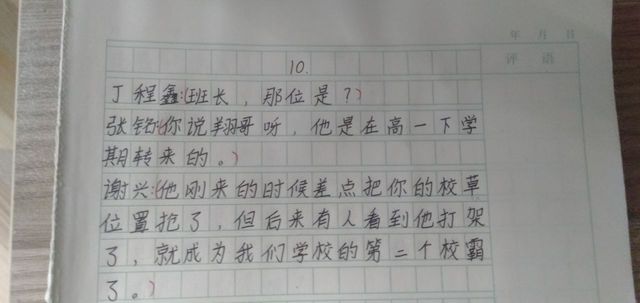 年 月 日
评 语
10.
丁程鑫:(班长，那位是？)
张铭:(你说翔哥呀，他是在高一下学
期转来的。)
谢兴:(他刚来的时候差点把你的校草
位置抢了，但后来有人看到他打架
了，就成为我们学校的第二个校霸
了。)